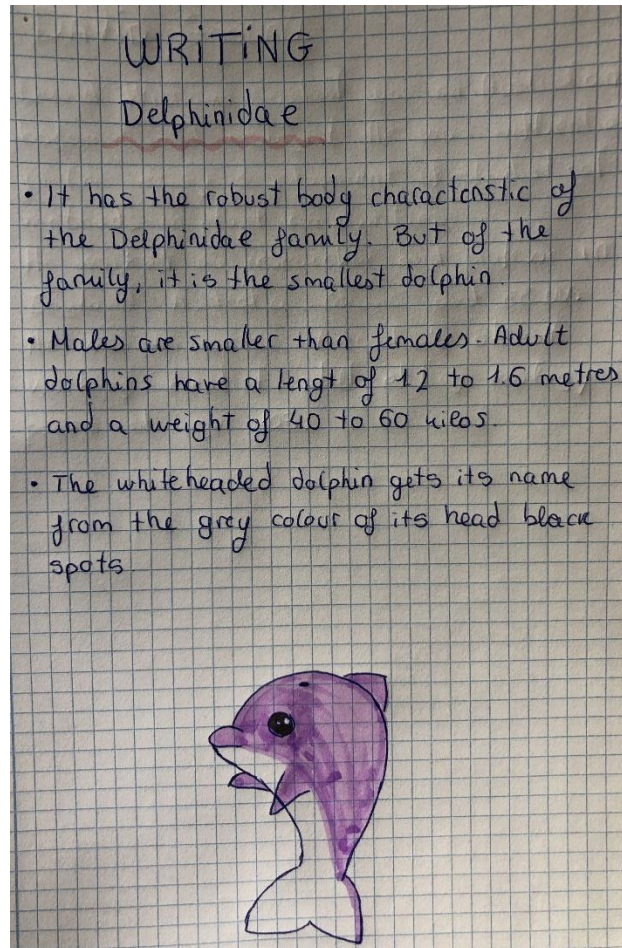 WRiTiNG
Delphinidae
• It has the robust body characteristic of
the Delphinidae family. But of the
family, it is the smallest dolphin.
• Males are smaller than females. Adult
dolphins have a lengt of 1.2 to 1.6 metres
and a weight of 40 to 60 kilos.
• The whiteheaded dolphin gets its name
from the grey colour of its head black
spots